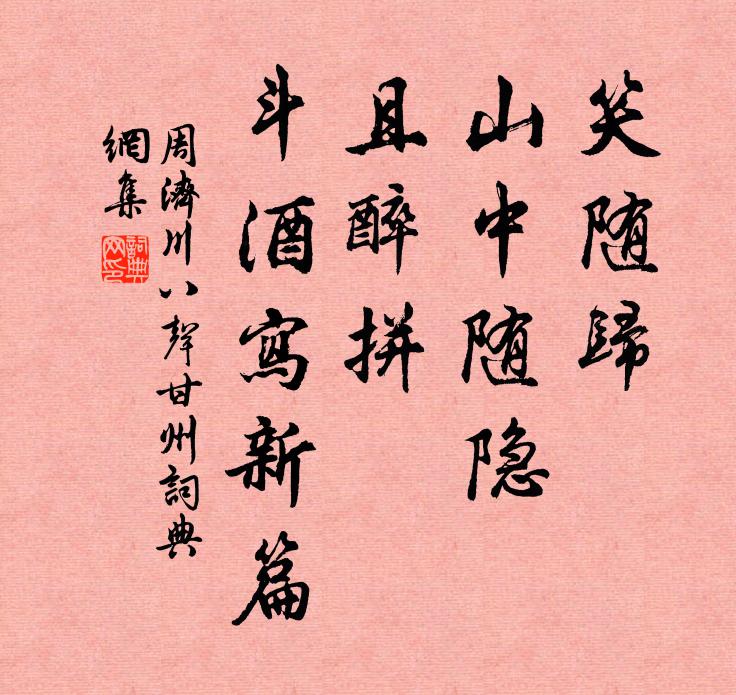 笑随歸
山中随隐
且醉拼
斗酒寫新篇
周濟川八聲甘州詞典
網集
詞典網印